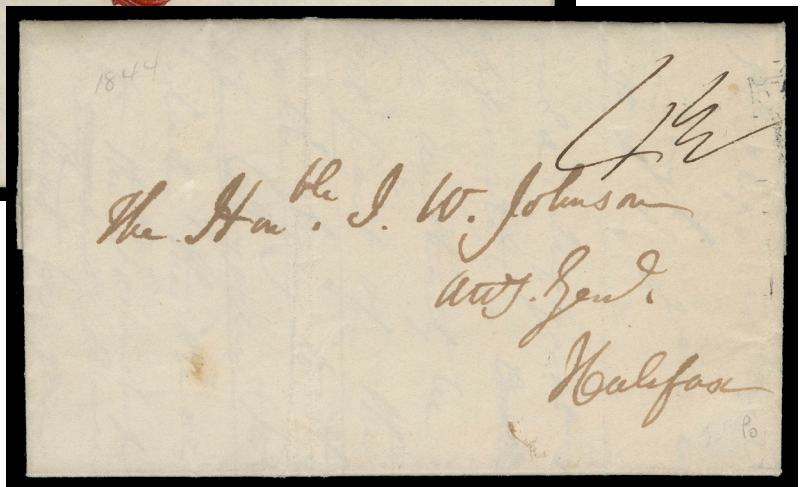 1844
The Honble. J. W. Johnson
Atty. Genl.
Halifax